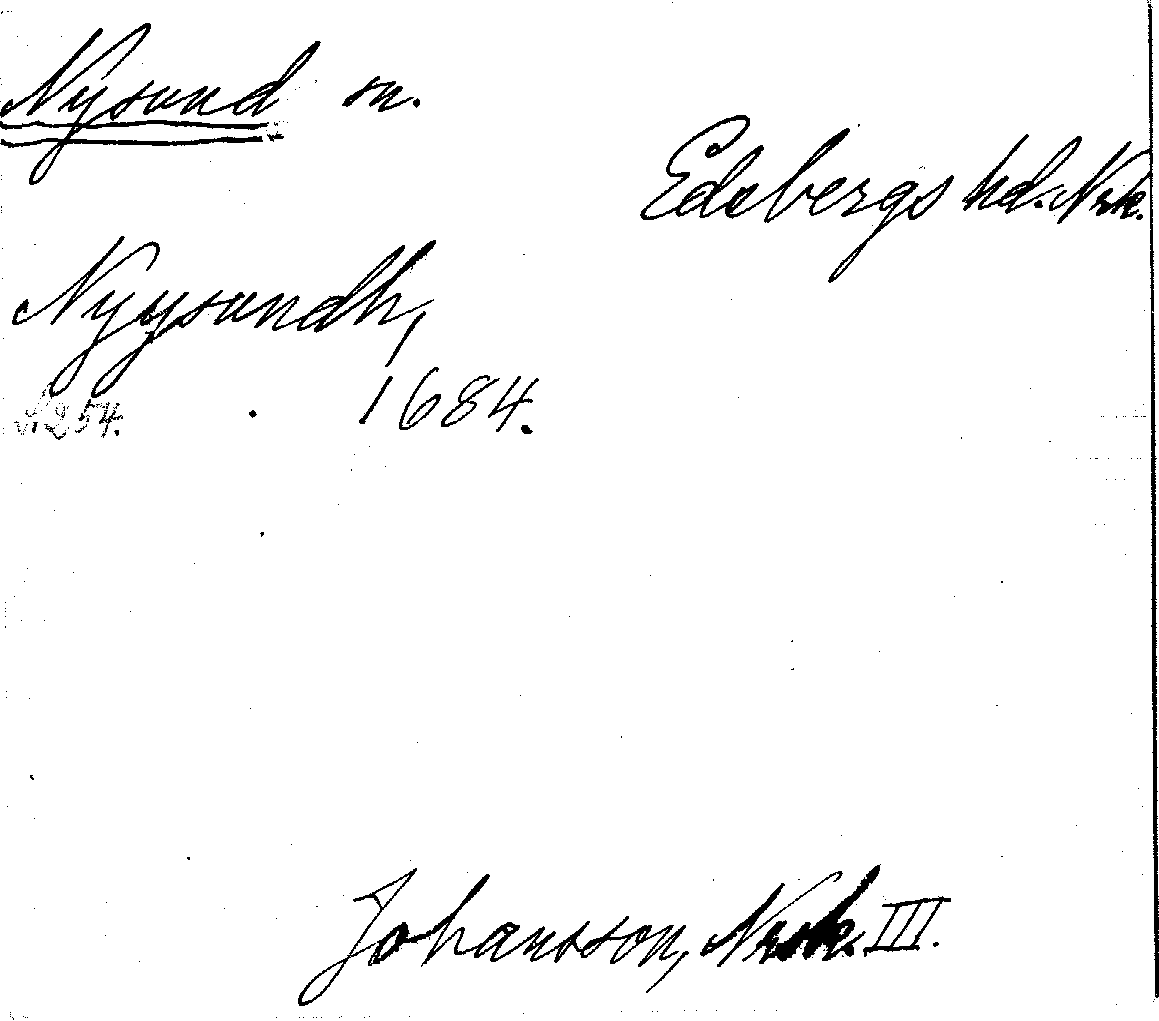 Nysund sn.
Edsbergs hd. Nrk.
Nyysundh,
S. 254. 1684.
Johansson, Nrk. III.